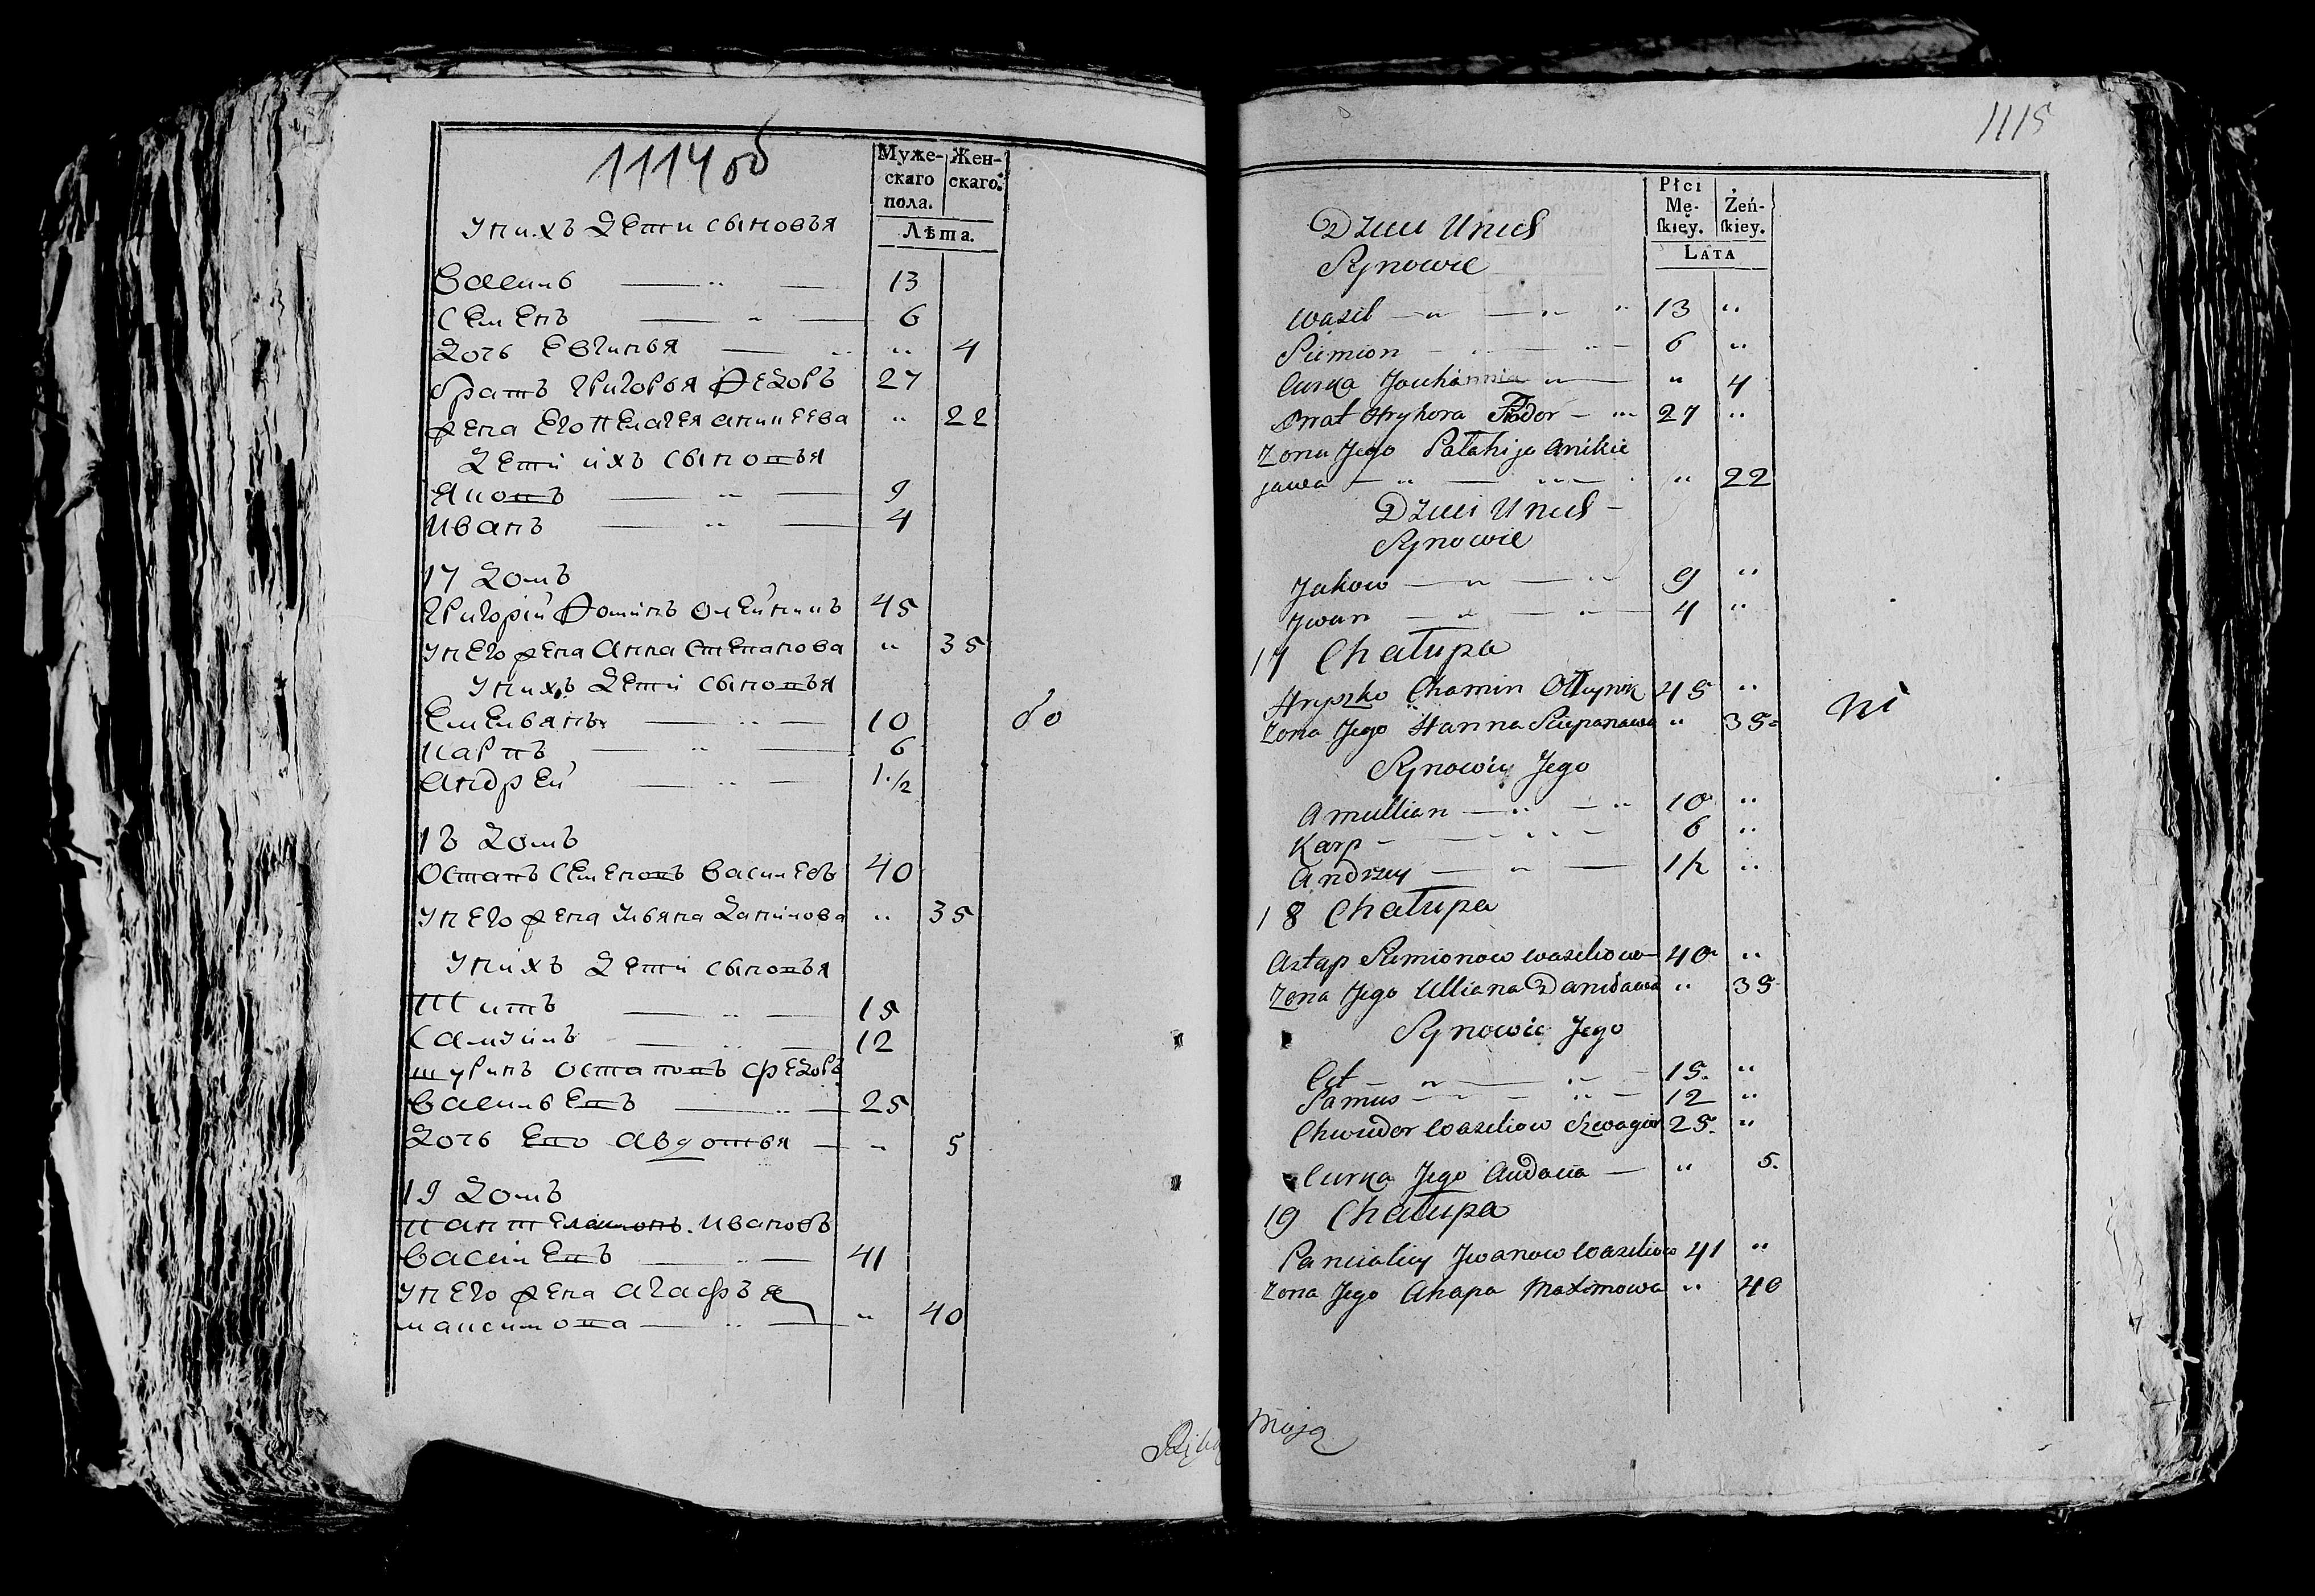 1114 об
Муже-
скаго
пола.
Жен-
скаго.
Лѣта.
У нихъ Дети сыновъя
Василь 13
Семенъ 6
Дочь Евгинья 4
братъ Григорья Федоръ 27
жена Его Пелагея аникеева 22
Дети ихъ сыновъя
Яковъ 9
Иванъ 4
17 Домъ
Григорій Фоминъ Олейникъ 45
У нЕго жена Анна Степанова 35
У нихъ Дети сыновъя
Емельянъ 10
Карпъ 6
Андрей 1 1/2
18 Домъ
Остапъ Семеновъ Василевъ 40
У нЕго жена Ульяна Данилова 35
У нихъ Дети сыновъя
Титъ 15
Самуилъ 12
шуринъ Остаповъ Федоръ
Васильевъ 25
Дочь Его Авдотья 5
19 Домъ
Пантелеимонъ Ивановъ
Васильевъ 41
У нЕго жена Агафъя
Максимова 40
1115
Płci
Mę-
skiey.
Żeń-
skiey.
LATA
Dzieci Unich
Synowie
Wasil 13
Siemion 6
Curka Jouhannia 4
Brat Hryhora Fiodor 27
Zona Jego Pałahija Anikie
jawa 22
Dzieci Unich
Synowie
Jakow 9
Jwan 4
17 Chałupa
Hryszko Chamin Olleynik 45
Zona Jego Hanna Sciepanawa 35
Synowie Jego
Amullian 10
Karp 6
Andrzey 1 1/2
18 Chałupa
Astap Siemionow Wasiliow 40
Zona Jego Ulliana Daniławа 35
Synowie Jego
Cit 15
Samus 12
Chwiedor Wasiliow Szwagier 25
Curka Jego Audocia 5.
19 Chałupa
Pancialiey Jwanow Wasiliow 41
Zona Jego Ahapa Maximowa 40